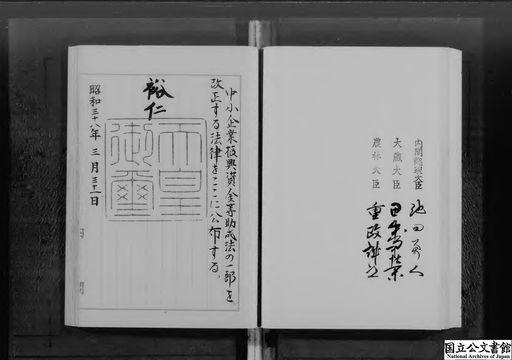 中小企業振興資金等助成法の一部を
改正する法律をここに公布する。
裕仁
天皇
御璽
昭和三十八年三月三十一日
内閣総理大臣 池田勇人
大蔵大臣 田中角栄
農林大臣 重政誠之
国立公文書館
National Archives of Japan